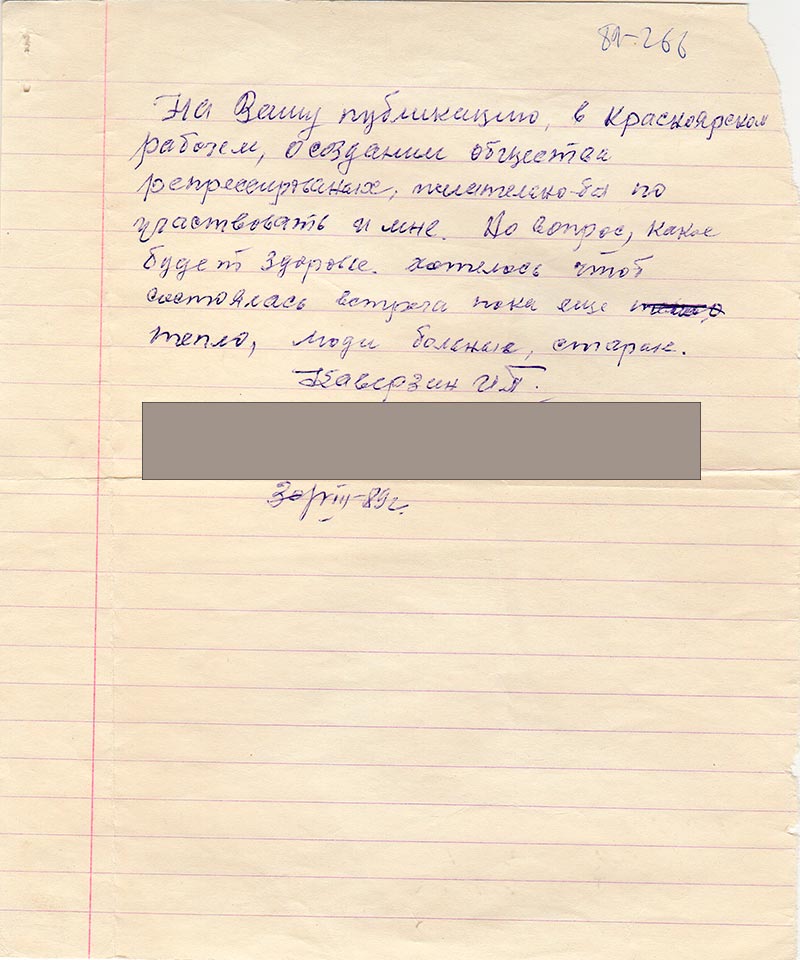 81-266
На Вашу публикацию, в Красноярском
рабочем, о создании общества
репрессированых, по
участвовать и мне. Но вопрос, какое
будет здоровье. хотелось чтоб
состоялась встреча пока еще
тепло, люди больные, старые.
Каверзин И.П.
30/VIII-89г.